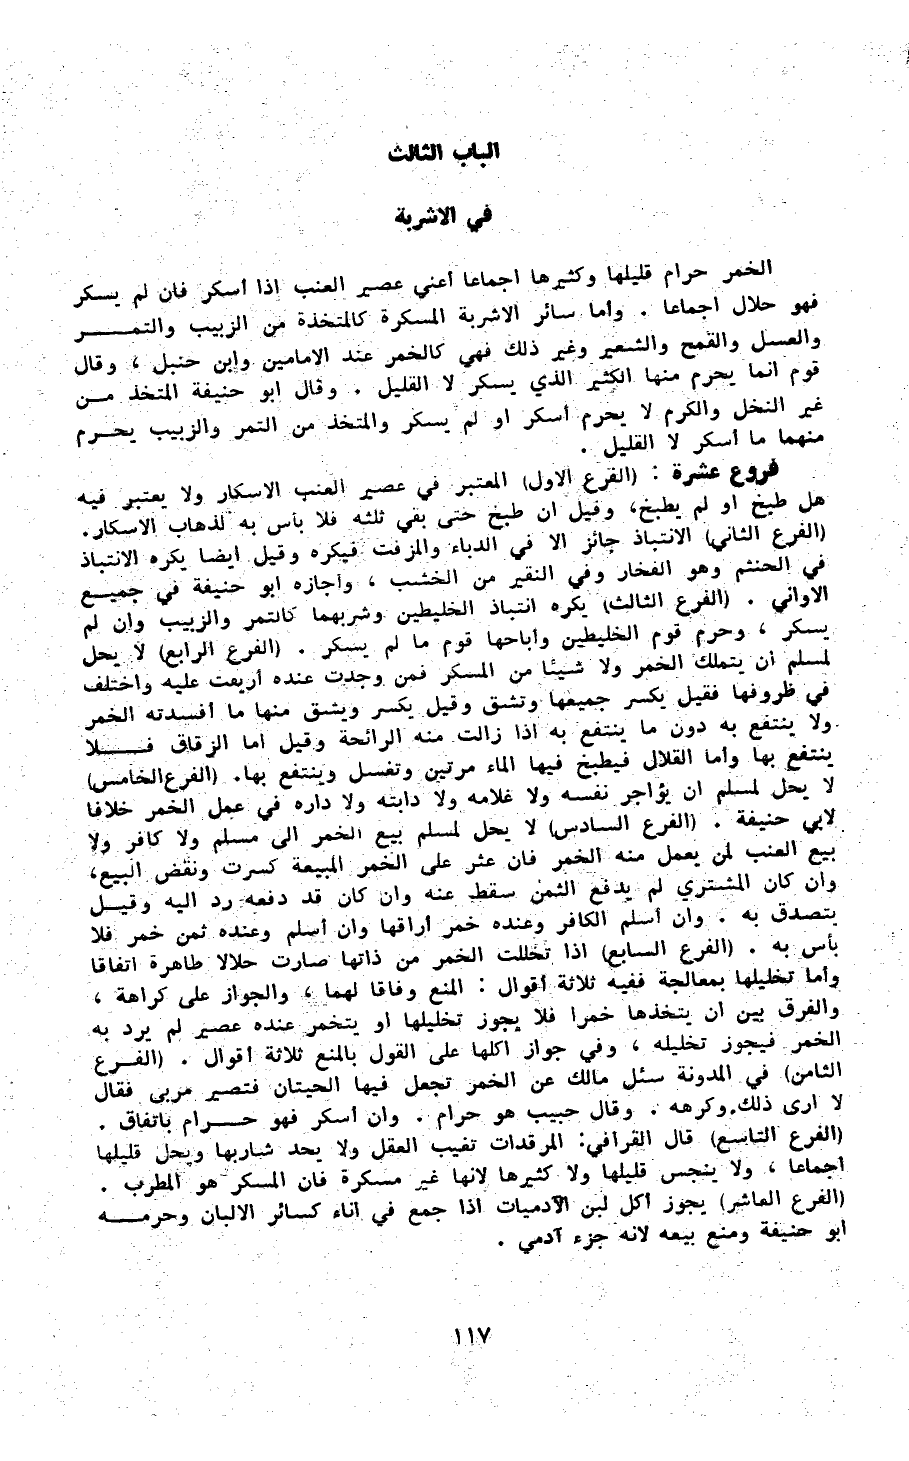 الباب الثالث
في الاشربة
الخمر حرام قليلها وكثيرها اجماعا أعني عصير العنب اذا أسكر فان لم يسكر
فهو حلال اجماعا . وأما سائر الاشربة المسكرة كالمتخذة من الزبيب والتمـــــر
والعسل والقمح والشعير وغير ذلك فهي كالخمر عند الامامين وابن حنبل ، وقال
قوم انما يحرم منها الكثير الذي يسكر لا القليل . وقال ابو حنيفة المتخذ مــن
غير النخل والكرم لا يحرم أسكر او لم يسكر والمتخذ من التمر والزبيب يحــرم
منهما ما أسكر لا القليل .
فروع عشرة : (الفرع الاول) المعتبر في عصير العنب الاسكار ولا يعتبر فيه
هل طبخ او لم يطبخ، وقيل ان طبخ حتى بقي ثلثه فلا بأس به لذهاب الاسكار.
(الفرع الثاني) الانتباذ جائز الا في الدباء والمزفت فيكره وقيل ايضا يكره الانتباذ
في الحنتم وهو الفخار وفي النقير من الخشب ، وأجازه ابو حنيفة في جميــع
الاواني . (الفرع الثالث) يكره انتباذ الخليطين وشربهما كالتمر والزبيب وان لم
يسكر ، وحرم قوم الخليطين وأباحها قوم ما لم يسكر . (الفرع الرابع) لا يحل
لمسلم أن يتملك الخمر ولا شيئا من المسكر فمن وجدت عنده أريقت عليه واختلف
في ظروفها فقيل يكسر جميعها وتشق وقيل يكسر ويشق منها ما أفسدته الخمر
ولا ينتفع به دون ما ينتفع به اذا زالت منه الرائحة وقيل اما الزقاق فــــلا
ينتفع بها وأما القلال فيطبخ فيها الماء مرتين وتغسل وينتفع بها. (الفرع الخامس)
لا يحل لمسلم ان يؤاجر نفسه ولا غلامه ولا دابته ولا داره في عمل الخمر خلافا
لابي حنيفة . (الفرع السادس) لا يحل لمسلم بيع الخمر الى مسلم ولا كافر ولا
بيع العنب لمن يعمل منه الخمر فان عثر على الخمر المبيعة كسرت ونقض البيع،
وان كان المشتري لم يدفع الثمن سقط عنه وان كان قد دفعه رد اليه وقيــل
يتصدق به . وان أسلم الكافر وعنده خمر أراقها وان أسلم وعنده ثمن خمر فلا
بأس به . (الفرع السابع) اذا تخللت الخمر من ذاتها صارت حلالا طاهرة اتفاقا
وأما تخليلها بمعالجة ففيه ثلاثة أقوال : المنع وفاقا لهما ، والجواز على كراهة ،
والفرق بين ان يتخذها خمرا فلا يجوز تخليلها او يتخمر عنده عصير لم يرد به
الخمر فيجوز تخليله ، وفي جواز اكلها على القول بالمنع ثلاثة أقوال . (الفــرع
الثامن) في المدونة سئل مالك عن الخمر تجعل فيها الحيتان فتصير مربى فقال
لا ارى ذلك.وكرهه . وقال حبيب هو حرام . وان أسكر فهو حــــرام باتفاق .
(الفرع التاسع) قال القرافي: المرقدات تغيب العقل ولا يحد شاربها ويحل قليلها
اجماعا ، ولا ينجس قليلها ولا كثيرها لانها غير مسكرة فان المسكر هو المطرب .
(الفرع العاشر) يجوز أكل لبن الآدميات اذا جمع في اناء كسائر الالبان وحرمــــه
ابو حنيفة ومنع بيعه لانه جزء آدمي .
١١٧